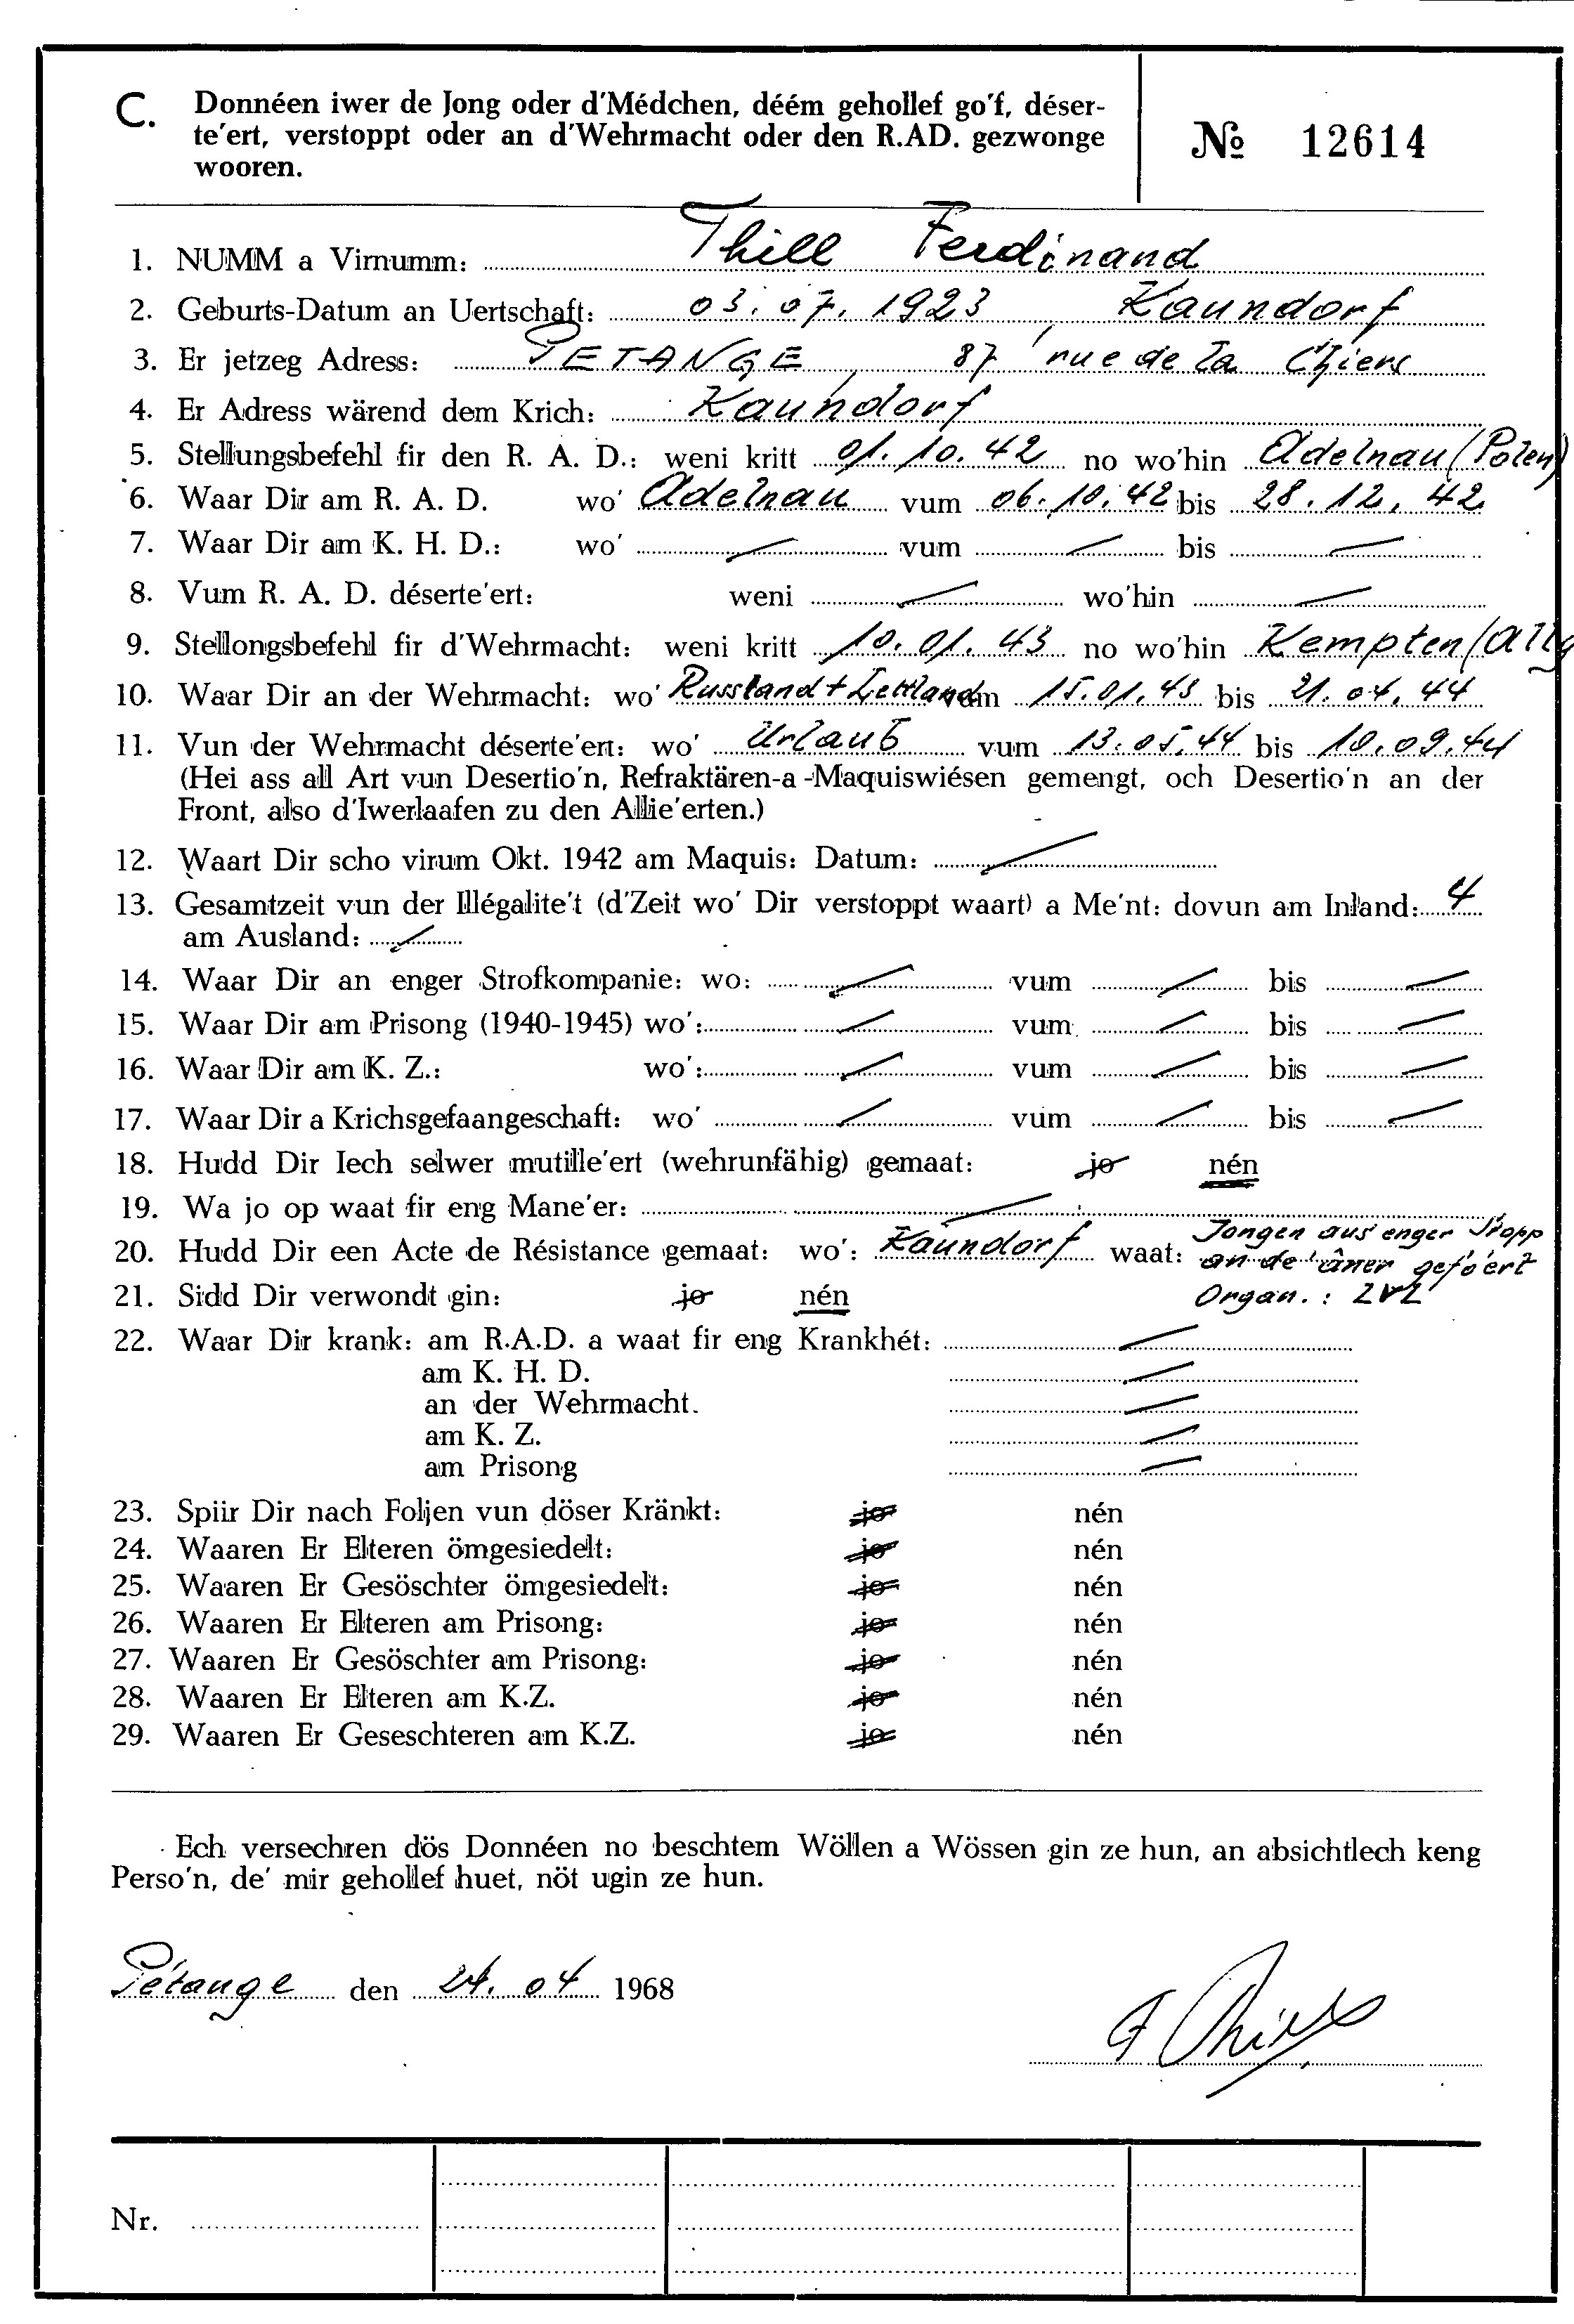 C. Donnéen iwer de Jong oder d'Médchen, déém gehollef go'f, déser-
te'ert, verstoppt oder an d'Wehrmacht oder den R.AD. gezwonge
wooren.
№ 12614
1. NUMM a Virnumm: Thill Ferdinand
2. Geburts-Datum an Uertschaft: 03.07.1923, Kaundorf
3. Er jetzeg Adress: PETANGE, 87 rue de la Chiers
4. Er Adress wärend dem Krich: Kaundorf
5. Stellungsbefehl fir den R. A. D.: weni kritt 01.10.42 no wo'hin Adelnau (Polen)
6. Waar Dir am R. A. D. wo' Adelnau vum 06.10.42 bis 28.12.42
7. Waar Dir am K. H. D.: wo' vum bis
8. Vum R. A. D. déserte'ert: weni wo'hin
9. Stellongsbefehl fir d'Wehrmacht: weni kritt 10.01.43 no wo'hin Kempten (Allg
10. Waar Dir an der Wehrmacht: wo' Russland + Lettland vum 15.01.43 bis 21.04.44
11. Vun der Wehrmacht déserte'ert: wo' Urlaub vum 13.05.44 bis 10.09.44
(Hei ass all Art vun Desertio'n, Refraktären-a-Maquiswiésen gemengt, och Desertio'n an der
Front, also d'Iwerlaafen zu den Allie'erten.)
12. Waart Dir scho virum Okt. 1942 am Maquis: Datum:
13. Gesamtzeit vun der Illégalite't (d'Zeit wo' Dir verstoppt waart) a Me'nt: dovun am Inland: 4
am Ausland:
14. Waar Dir an enger Strofkompanie: wo: vum bis
15. Waar Dir am Prisong (1940-1945) wo': vum bis
16. Waar Dir am K. Z.: wo': vum bis
17. Waar Dir a Krichsgefaangeschaft: wo' vum bis
18. Hudd Dir Iech selwer mutille'ert (wehrunfähig) gemaat: jo nén
19. Wa jo op waat fir eng Mane'er:
20. Hudd Dir een Acte de Résistance gemaat: wo': Kaundorf waat: Jongen aus enger Stopp
an de' âner gefo'ert
21. Sidd Dir verwondt gin: jo nén Organ.: LVL
22. Waar Dir krank: am R.A.D. a waat fir eng Krankhét:
am K. H. D.
an der Wehrmacht.
am K. Z.
am Prisong
23. Spiir Dir nach Foljen vun döser Kränkt: jo nén
24. Waaren Er Elteren ömgesiedelt: jo nén
25. Waaren Er Gesöschter ömgesiedelt: jo nén
26. Waaren Er Elteren am Prisong: jo nén
27. Waaren Er Gesöschter am Prisong: jo nén
28. Waaren Er Elteren am K.Z. jo nén
29. Waaren Er Geseschteren am K.Z. jo nén
Ech versechren dös Donnéen no beschtem Wöllen a Wössen gin ze hun, an absichtlech keng
Perso'n, de' mir gehollef huet, nöt ugin ze hun.
Pétange den 24.04 1968
F Thill
Nr.